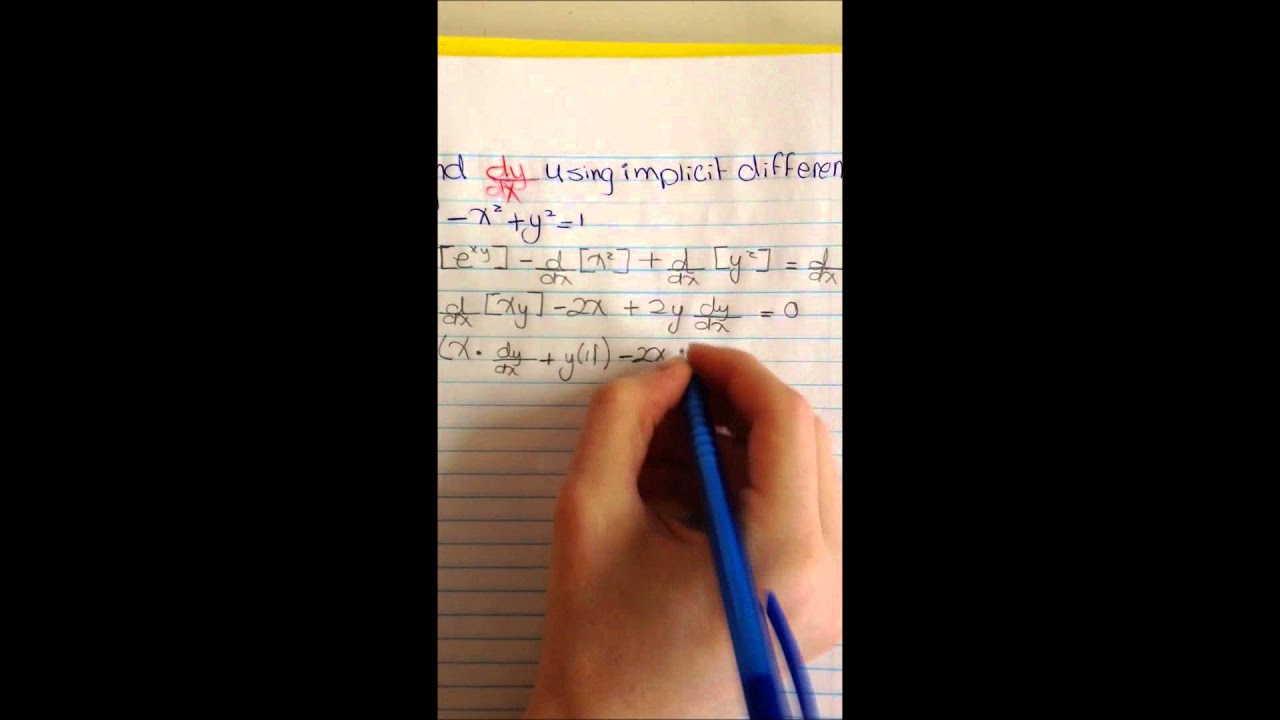 nd dy/dx using implicit differen
- x² + y² = 1
[e^xy] - d/dx [x²] + d/dx [y²] = d/dx
d/dx [xy] - 2x + 2y dy/dx = 0
(x · dy/dx + y(1)) - 2x